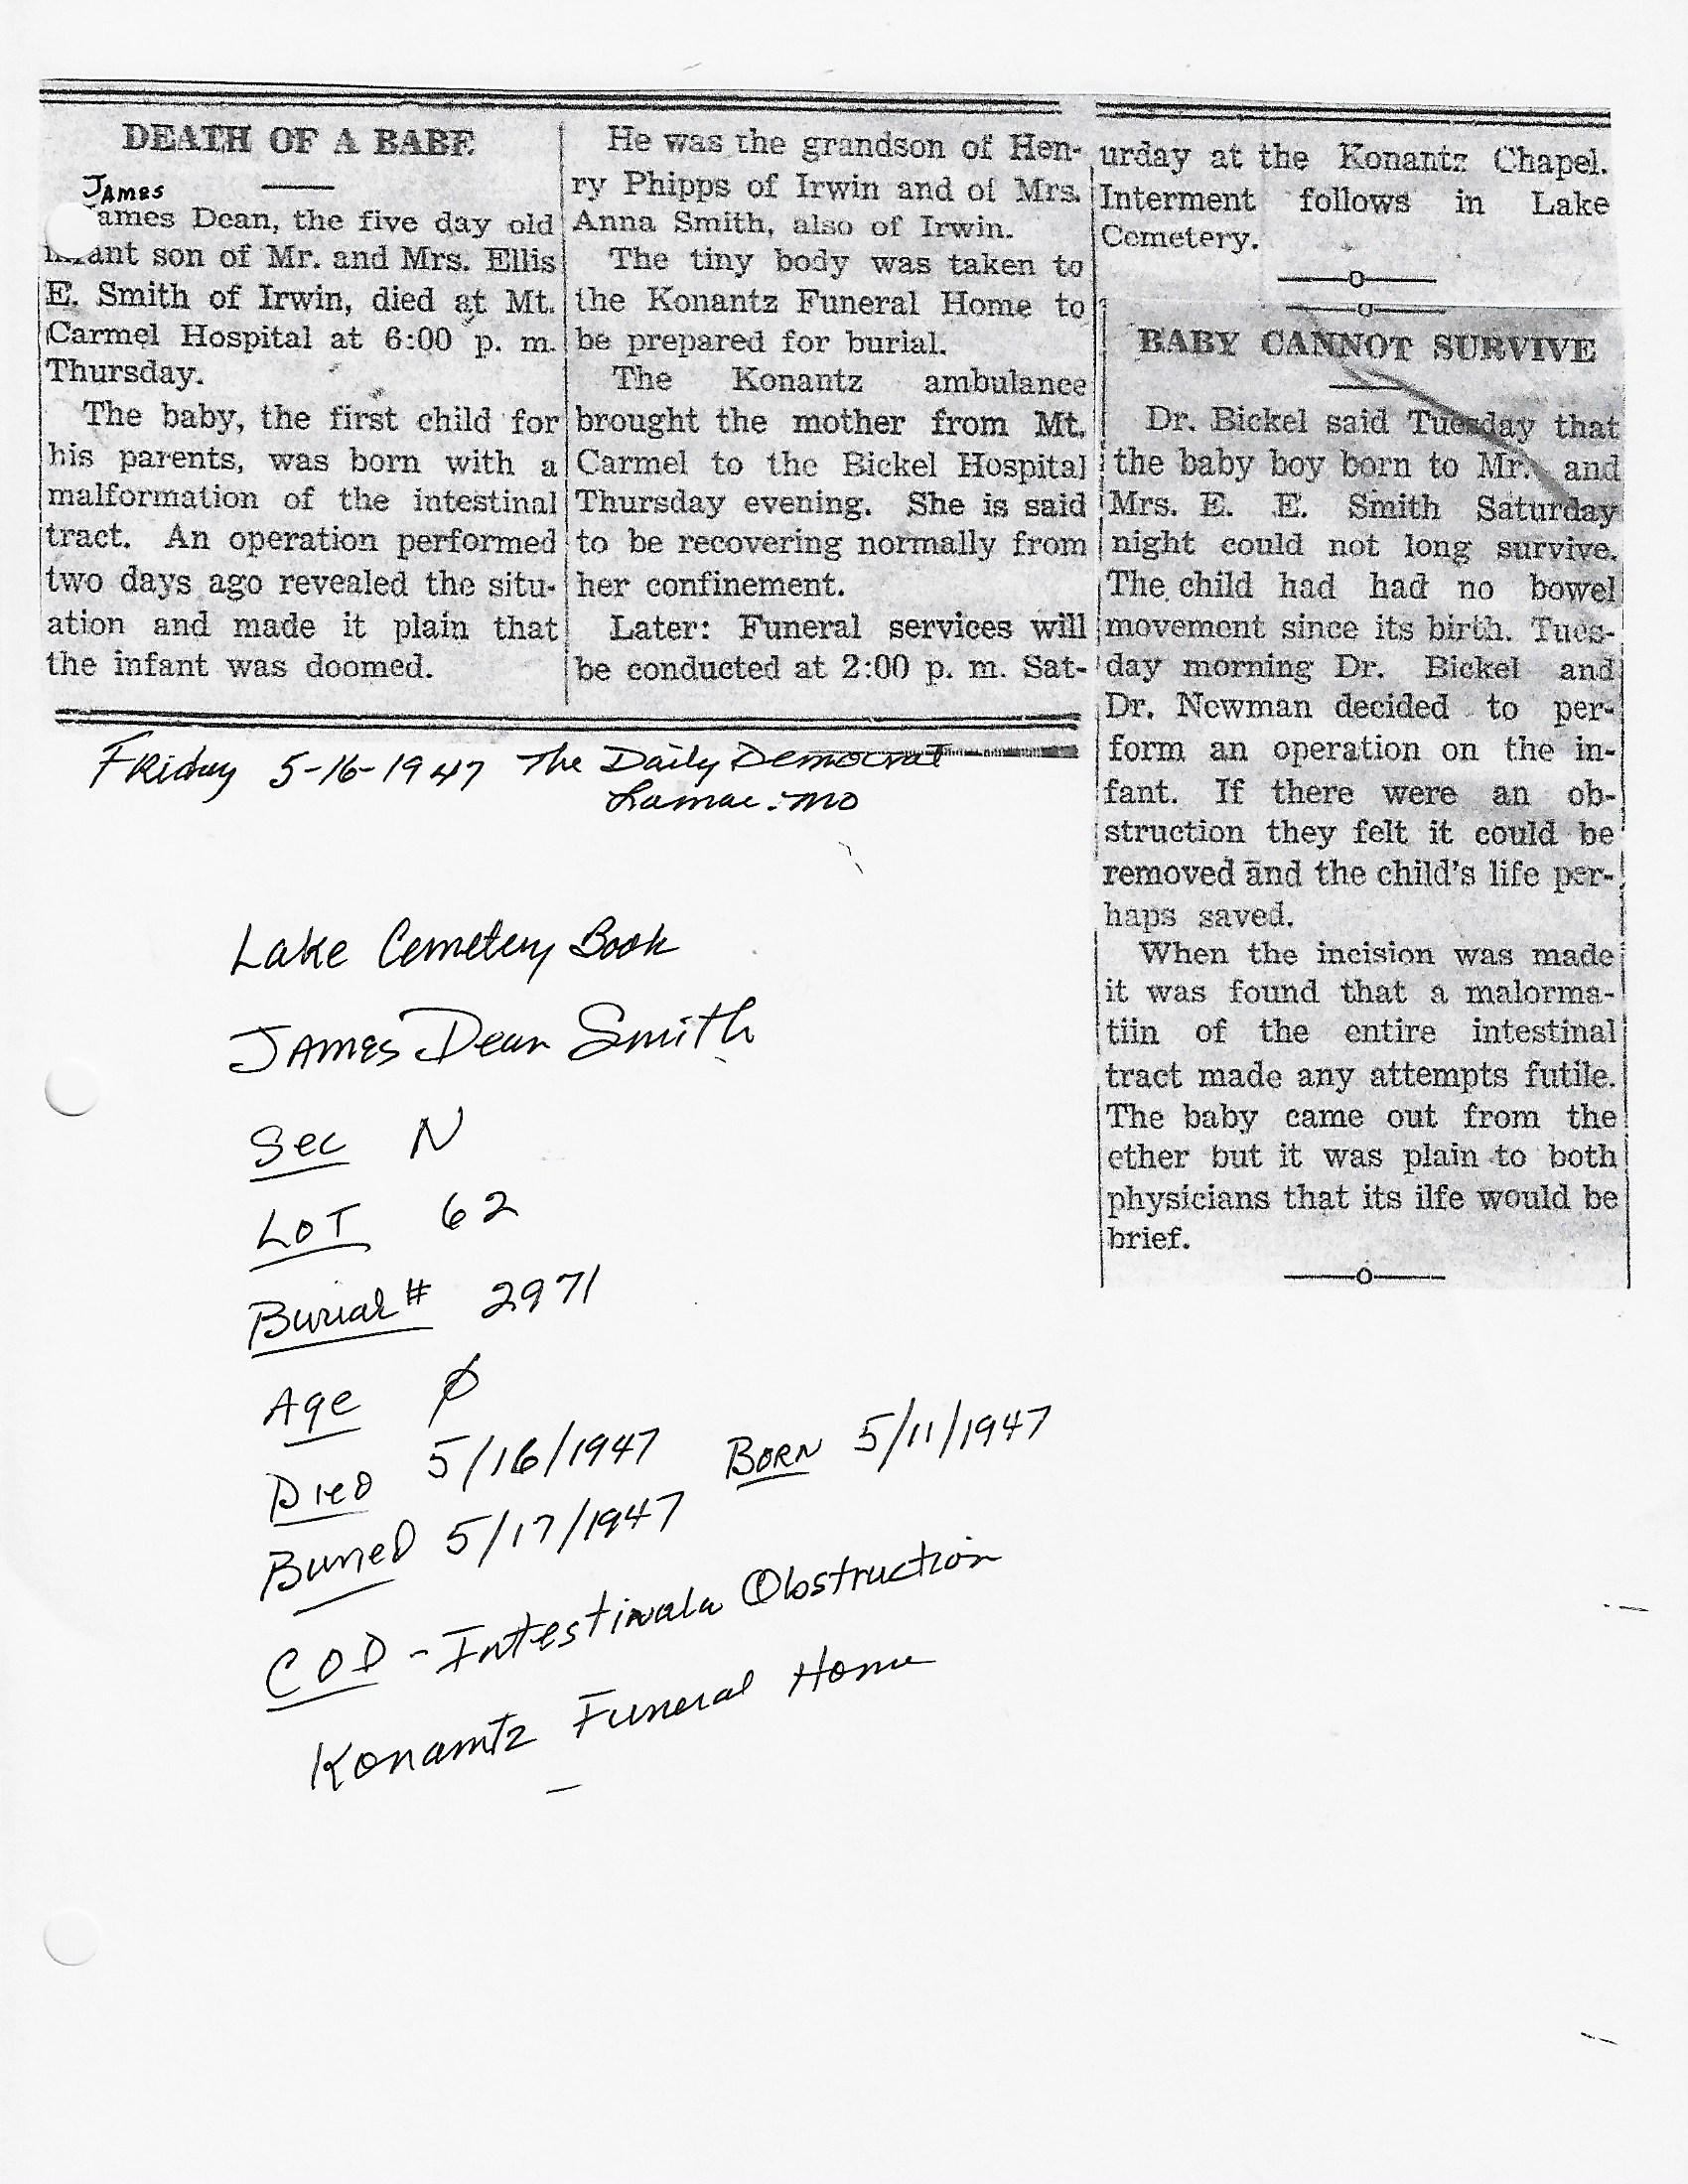 DEATH OF A BABE
James
ames Dean, the five day old
infant son of Mr. and Mrs. Ellis
E. Smith of Irwin, died at Mt.
Carmel Hospital at 6:00 p. m.
Thursday.
The baby, the first child for
his parents, was born with a
malformation of the intestinal
tract. An operation performed
two days ago revealed the situ-
ation and made it plain that
the infant was doomed.
He was the grandson of Hen-
ry Phipps of Irwin and of Mrs.
Anna Smith, also of Irwin.
The tiny body was taken to
the Konantz Funeral Home to
be prepared for burial.
The Konantz ambulance
brought the mother from Mt.
Carmel to the Bickel Hospital
Thursday evening. She is said
to be recovering normally from
her confinement.
Later: Funeral services will
be conducted at 2:00 p. m. Sat-
urday at the Konantz Chapel.
Interment follows in Lake
Cemetery.
BABY CANNOT SURVIVE
Dr. Bickel said Tuesday that
the baby boy born to Mr. and
Mrs. E. E. Smith Saturday
night could not long survive.
The child had had no bowel
movement since its birth. Tues-
day morning Dr. Bickel and
Dr. Newman decided to per-
form an operation on the in-
fant. If there were an ob-
struction they felt it could be
removed and the child's life per-
haps saved.
When the incision was made
it was found that a malorma-
tiin of the entire intestinal
tract made any attempts futile.
The baby came out from the
ether but it was plain to both
physicians that its ilfe would be
brief.
Friday 5-16-1947 The Daily Democrat
Lamar, MO
Lake Cemetery Book
James Dean Smith
Sec N
LOT 62
Burial # 2971
Age 0
Died 5/16/1947 BORN 5/11/1947
Buried 5/17/1947
COD - Intestinala Obstruction
Konantz Funeral Home